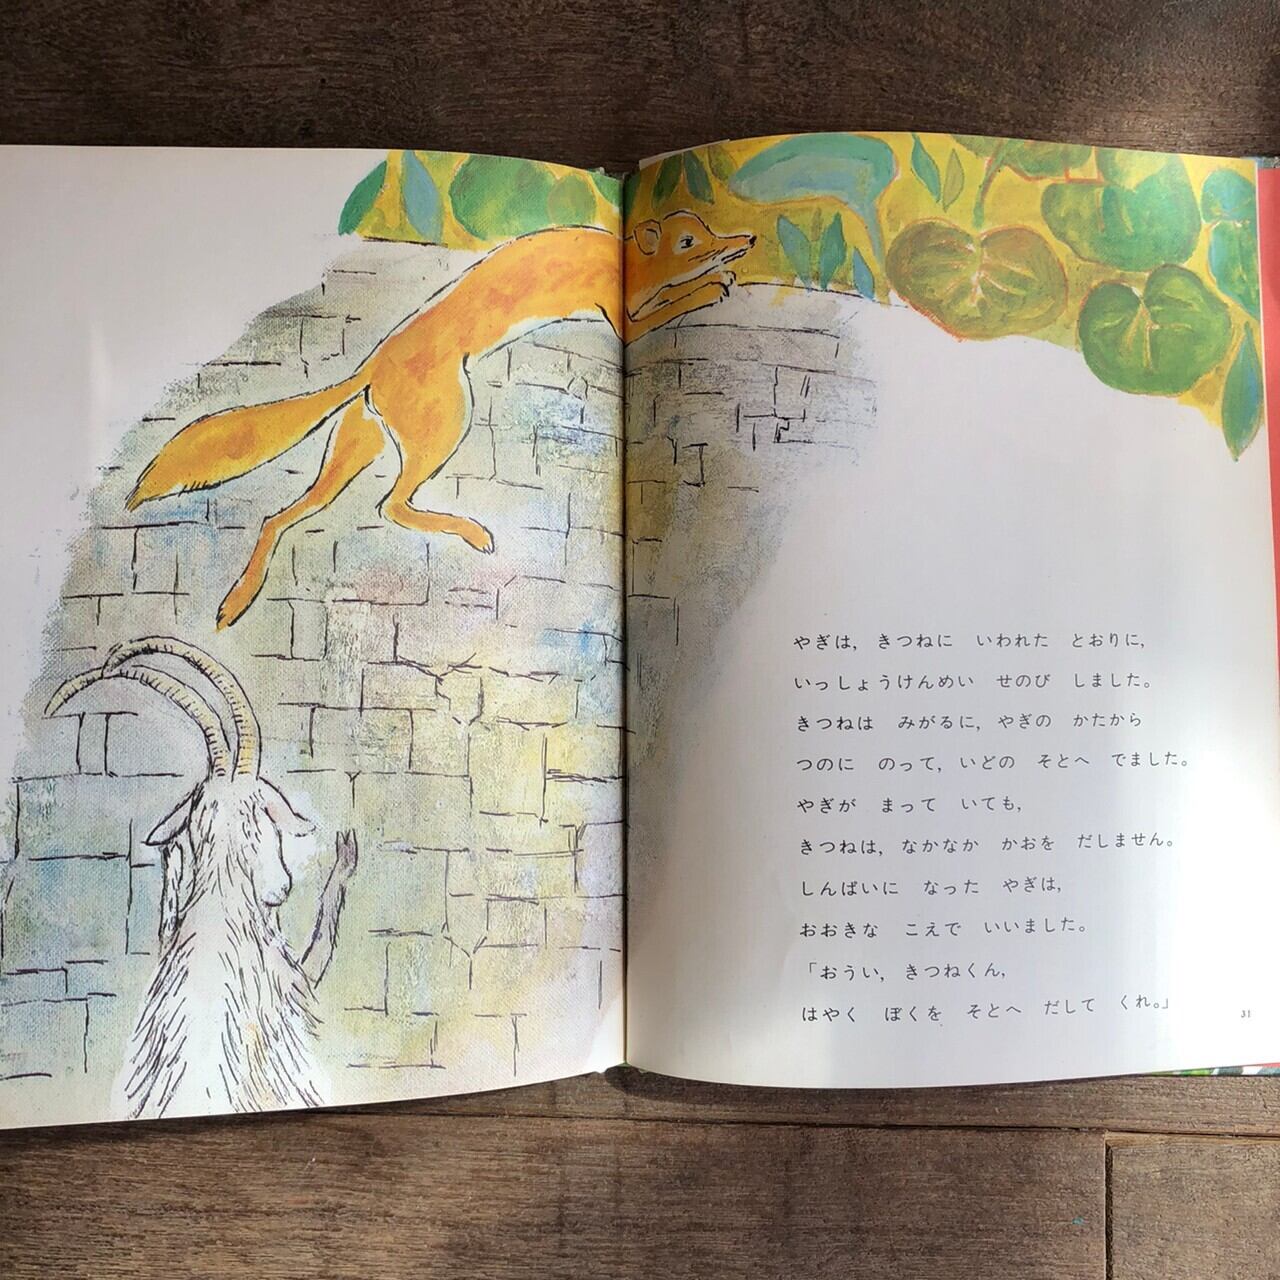 やぎは, きつねに いわれた とおりに,
いっしょうけんめい せのび しました。
きつねは みがるに, やぎの かたから
つのに のって, いどの そとへ でました。
やぎが まって いても,
きつねは, なかなか かおを だしません。
しんぱいに なった やぎは,
おおきな こえで いいました。
「おうい, きつねくん,
はやく ぼくを そとへ だして くれ。」
31